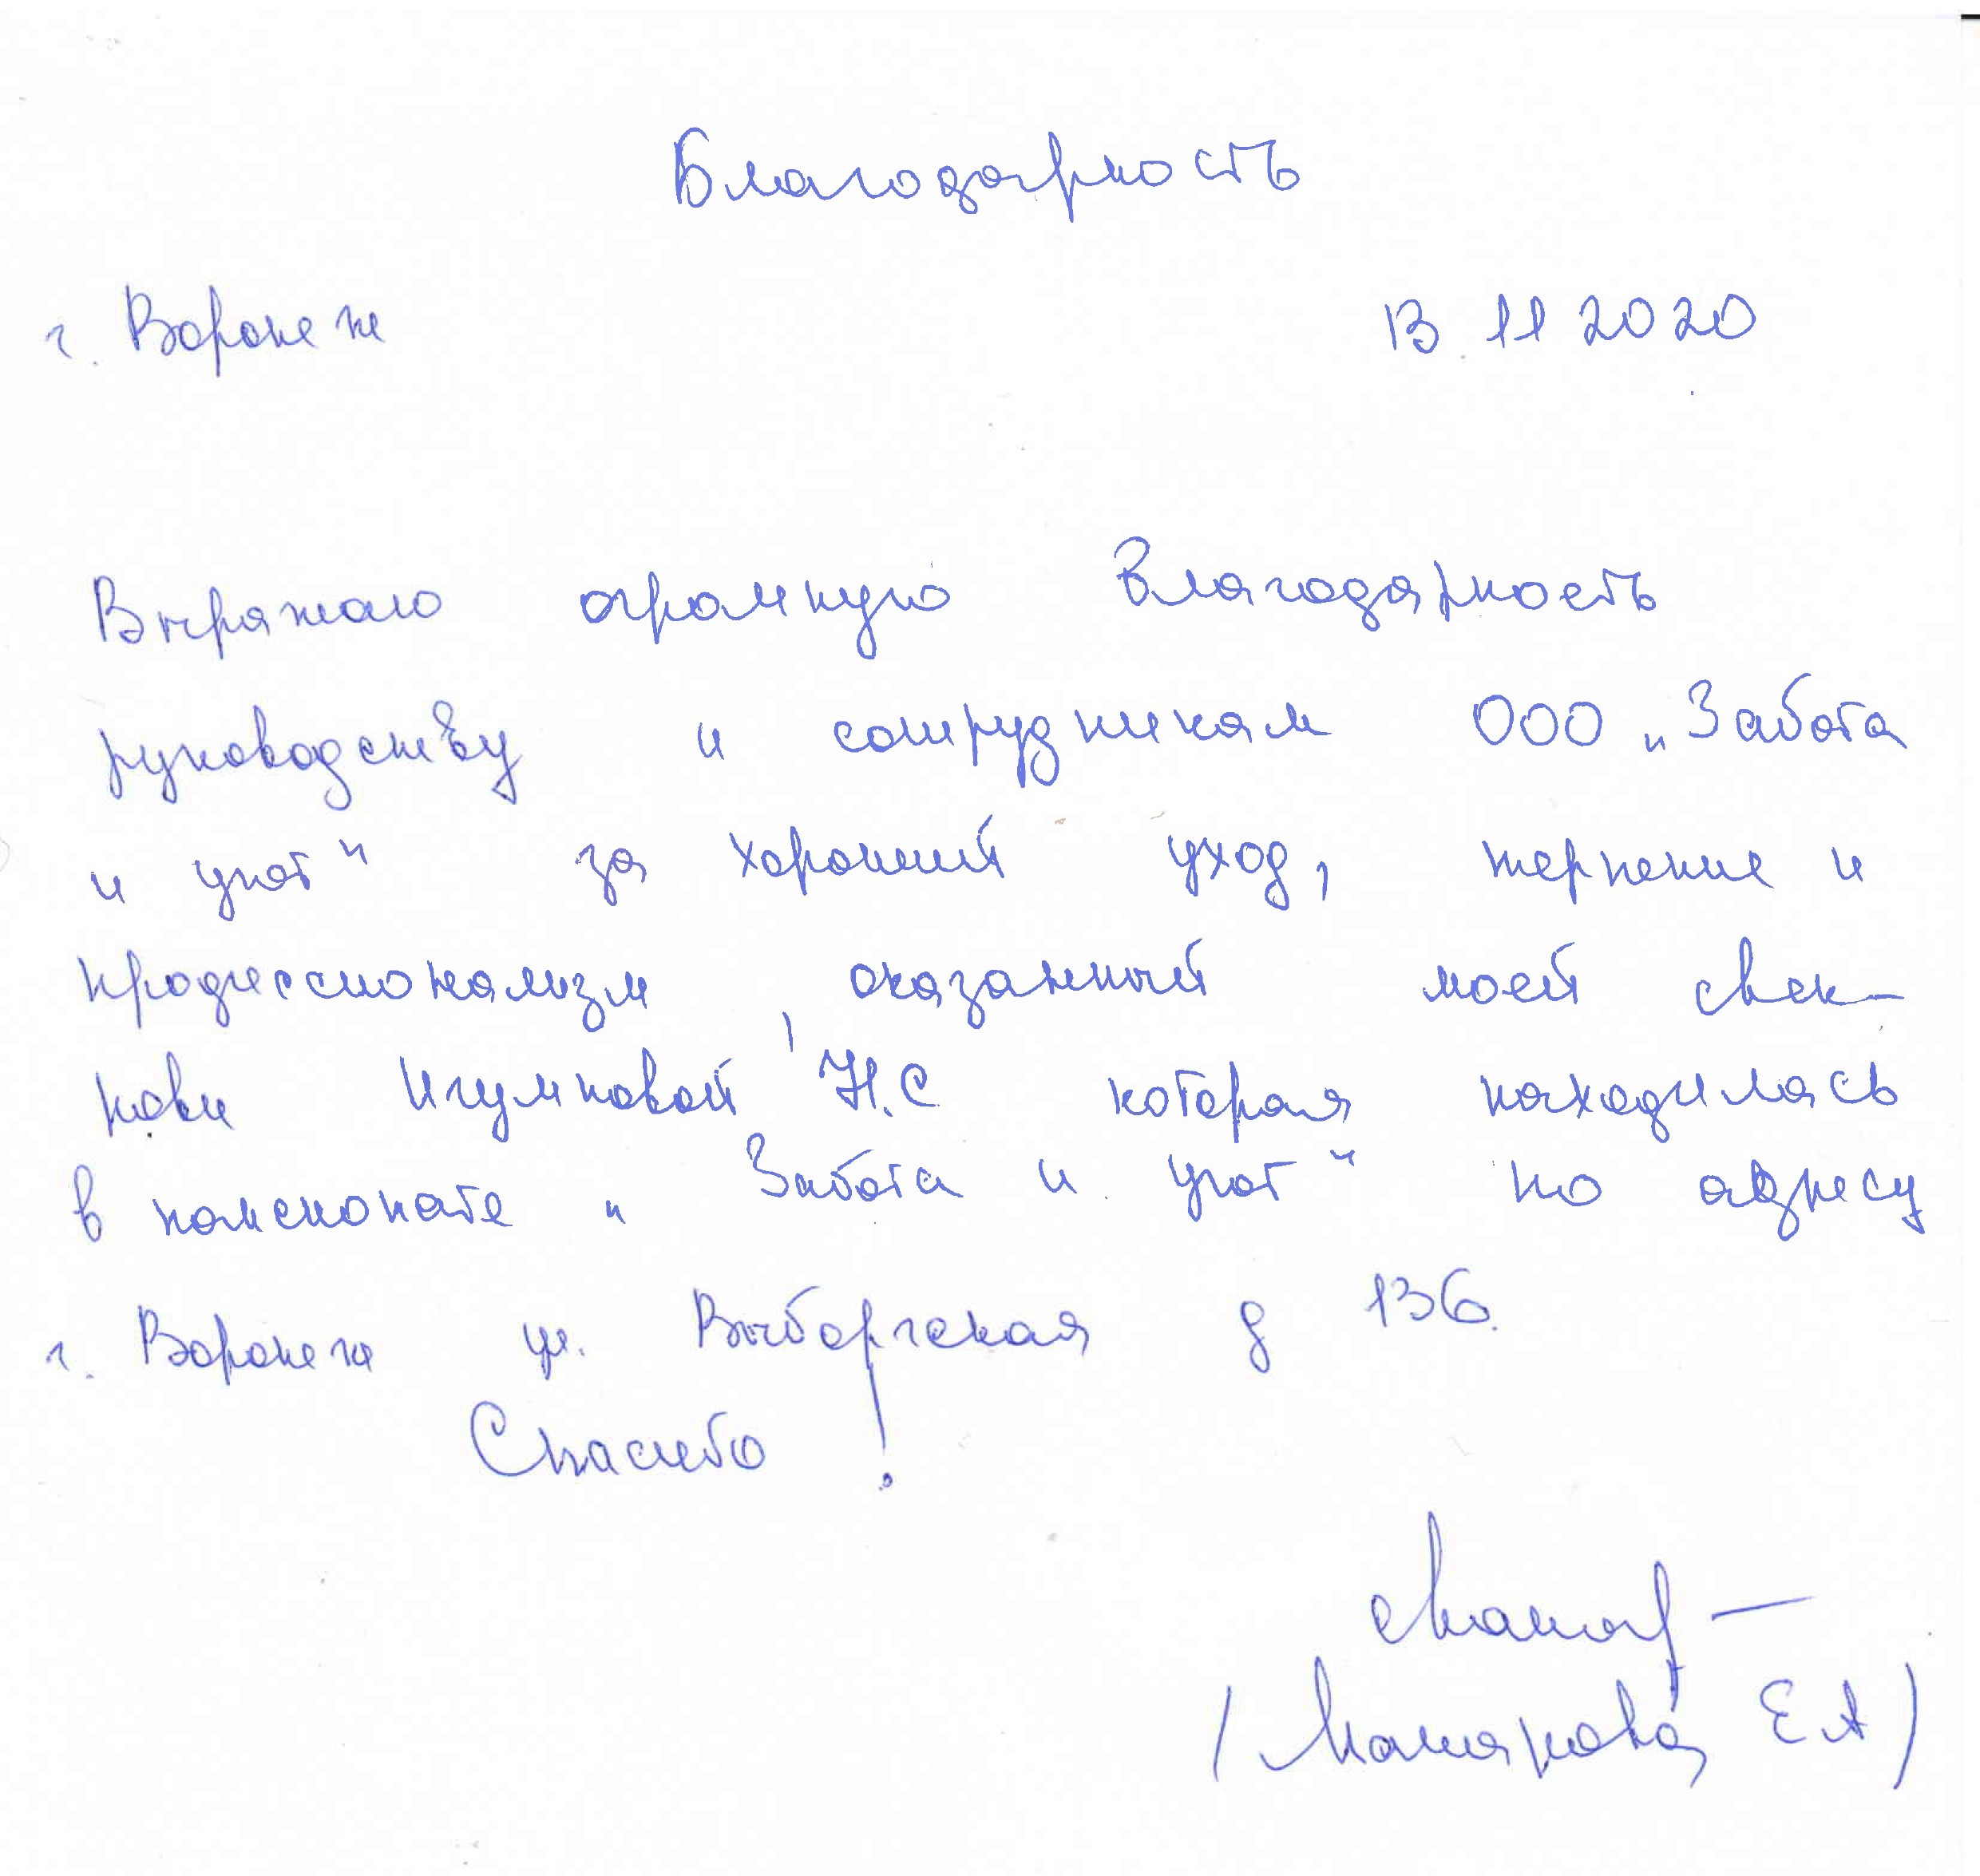 Благодарность
г. Воронеж 13.11 2020
Выражаю огромную благодарность
руководству и сотрудникам ООО „Забота
и уют“ за хороший уход, терпение и
профессионализм, оказанный моей свек-
рови Игумновой Н.С которая находилась
в пансионате „Забота и уют“ по адресу
г. Воронеж ул. Выборгская д 136.
Спасибо!
( ЕА)